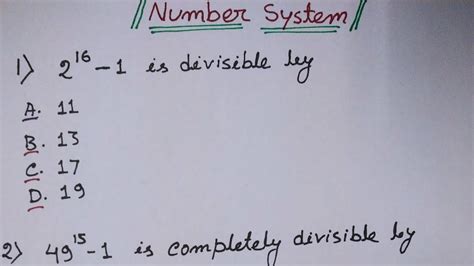 Number System
1) 2¹⁶-1 is divisible by
A. 11
B. 13
C. 17
D. 19
2) 49¹⁵-1 is completely divisible by